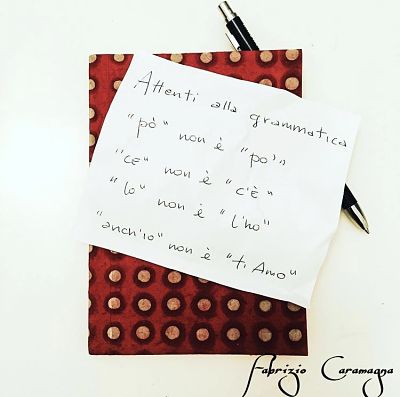 Attenti alla grammatica
"pò" non è "po'"
"ce" non è "c'è"
"lo" non è "l'ho"
"anch'io" non è "ti Amo"
Fabrizio Caramagna